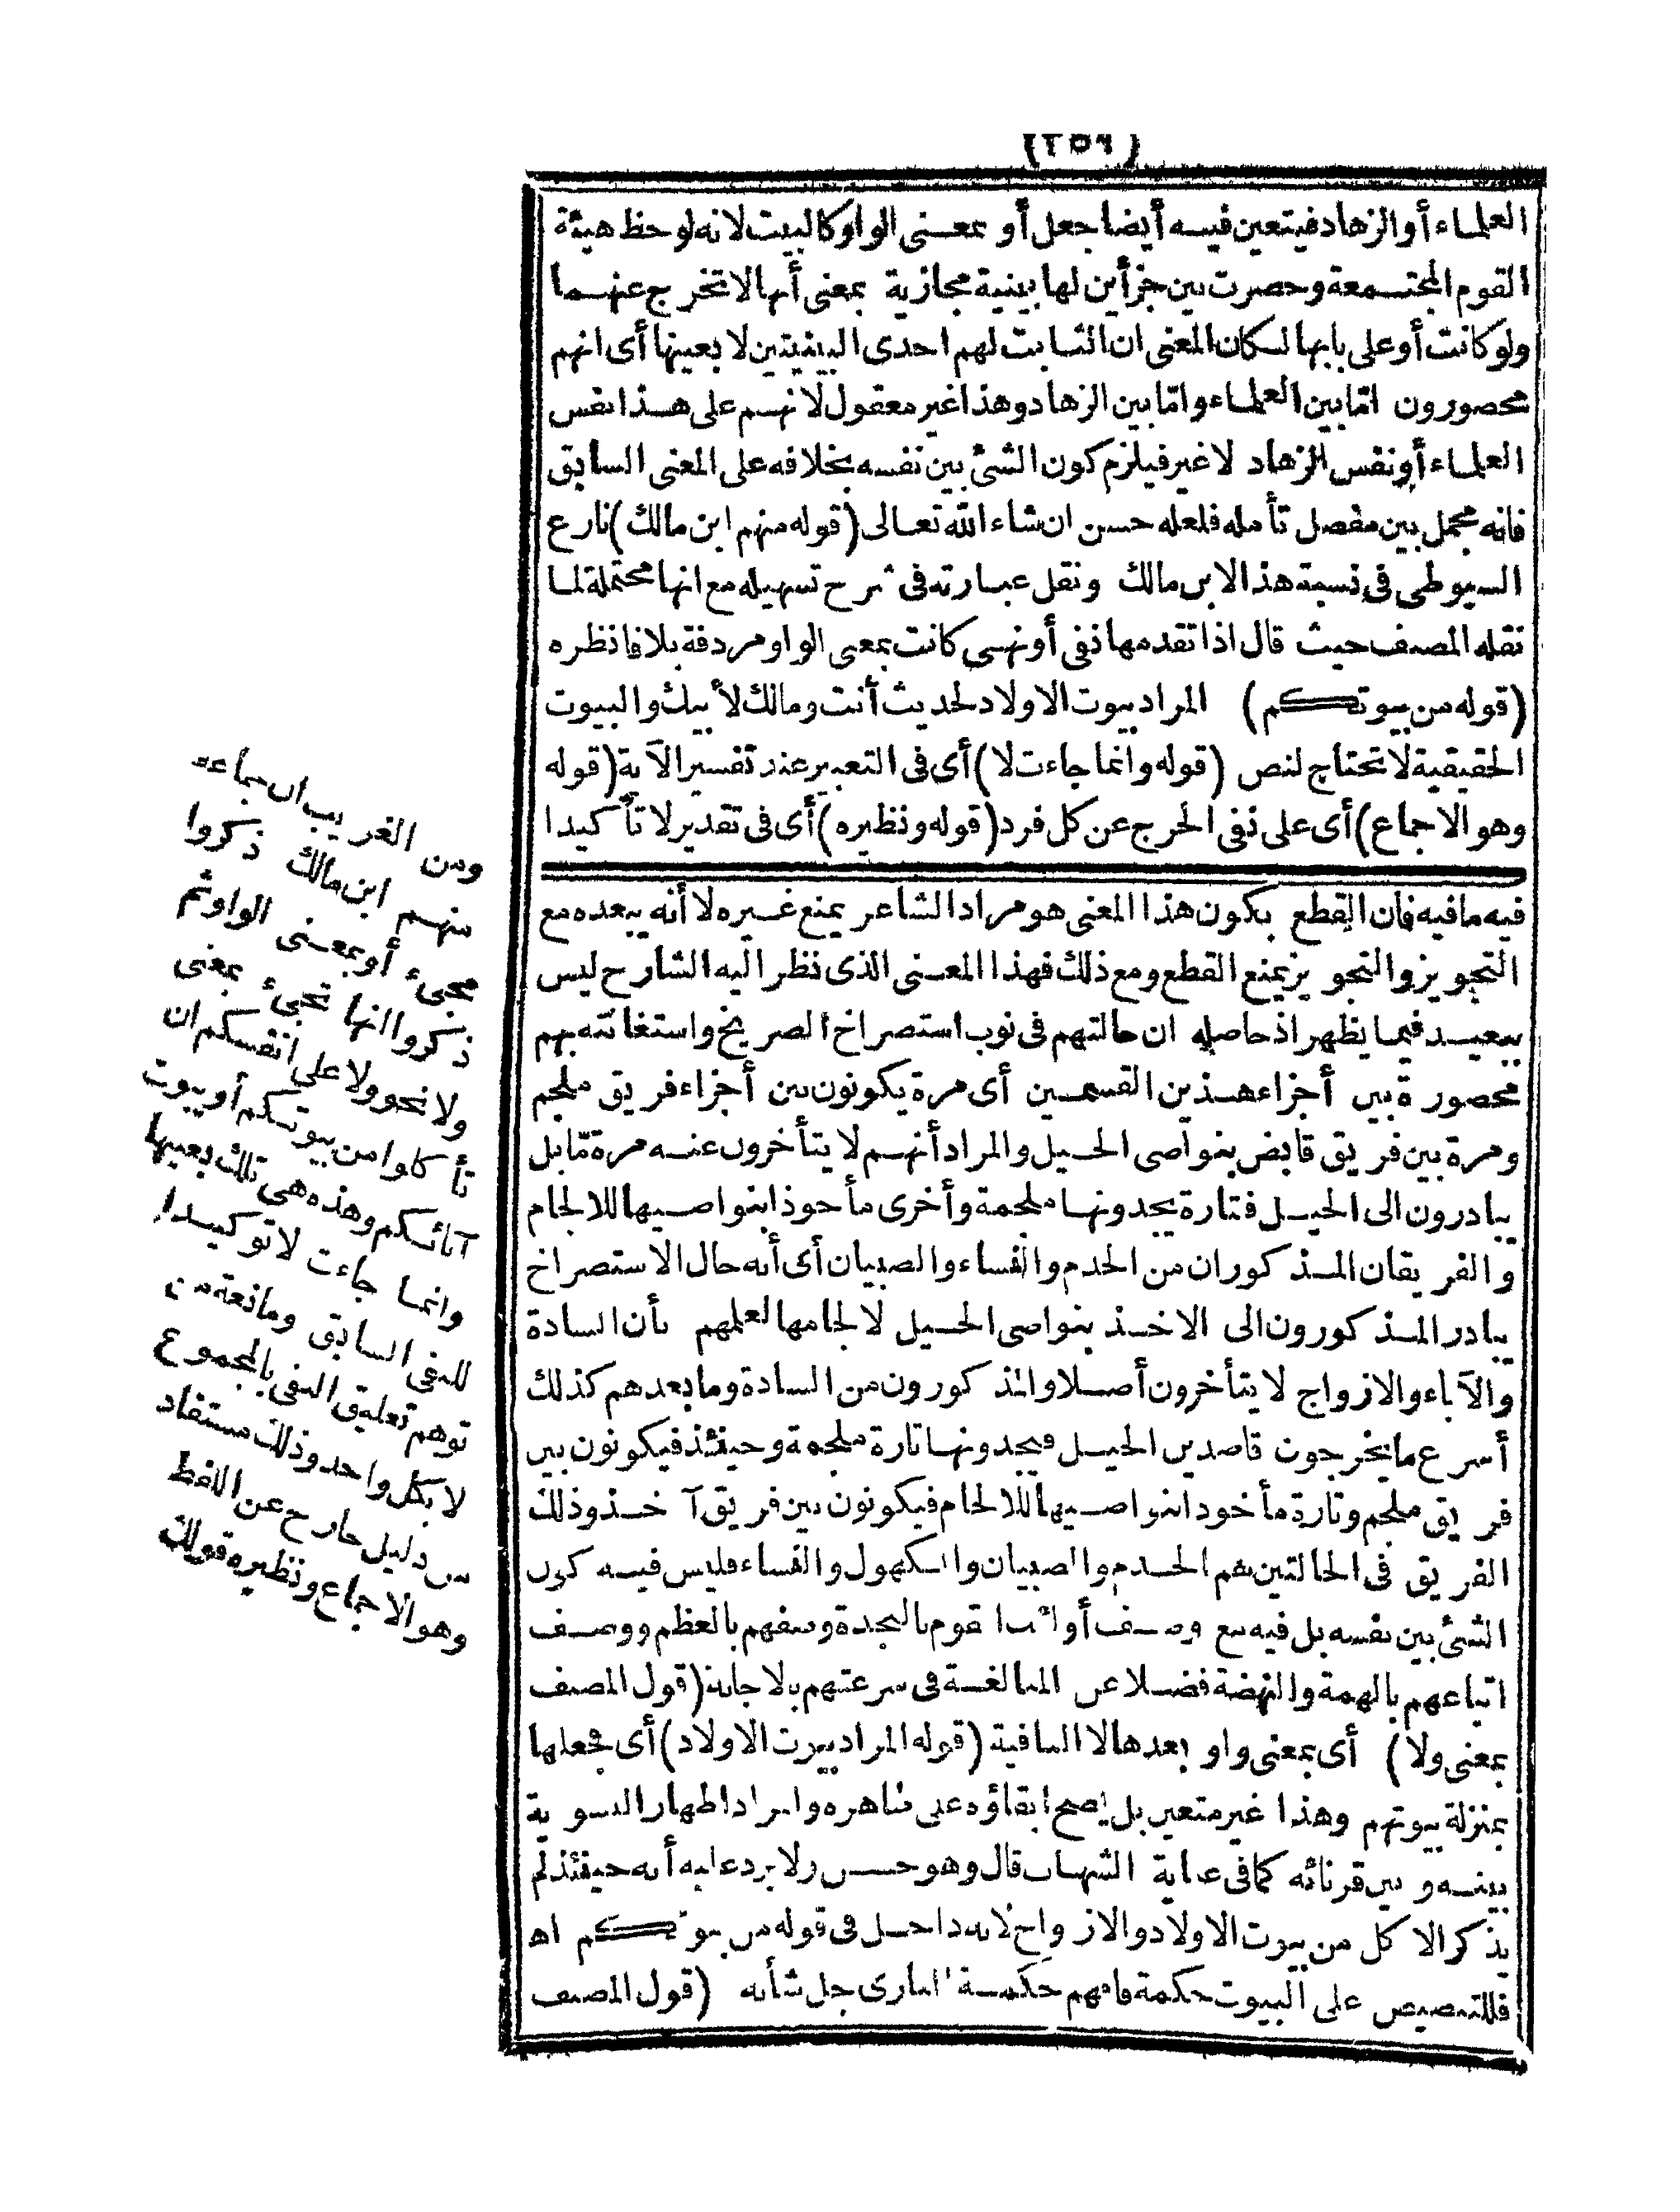 (٢٥٦)
العلماء أو الزهاد فيتعين فيه أيضا جعل أو بمعنى الواو كالبيت لانه لوحظ هيئة
القوم المجتمعة وحصرت بين جزأين لها بينية مجازية بمعنى أنها لا تخرج عنهما
ولو كانت أو على بابها لكان المعنى ان الثابت لهم احدى البينيتين لا بعينها أى انهم
محصورون امّا بين العلماء وامّا بين الزهاد وهذا غير معقول لانهم على هذا نفس
العلماء أو نفس الزهاد لا غير فيلزم كون الشئ بين نفسه بخلافه على المعنى السابق
فانه مجمل بين مفصل تأمله فلعله حسن ان شاء الله تعالى (قوله منهم ابن مالك) نازع
السيوطى فى نسبة هذا لابن مالك ونقل عبارته فى شرح تسهيله مع انها محتملة لما
نقله المصنف حيث قال اذا تقدمها نفى أو نهى كانت بمعنى الواو مردفة بلا فانظره
(قوله من بيوتكم) المراد بيوت الاولاد لحديث أنت ومالك لأبيك والبيوت
الحقيقية لا تحتاج لنص (قوله وانما جاءت لا) أى فى التعبير عند تفسير الآية (قوله
وهو الاجماع) أى على نفى الحرج عن كل فرد (قوله ونظيره) أى فى تقدير لا تأكيدا
فيه مافيه فان القطع بكون هذا المعنى هو مراد الشاعر يمنع غيره لا أنه يبعده مع
التجويز والتجويز يمنع القطع ومع ذلك فهذا المعنى الذى نظر اليه الشارح ليس
ببعيد فيما يظهر اذ حاصله ان حالتهم فى نوب استصراخ الصريخ واستغاثته بهم
محصورة بين أجزاء هذين القسمين أى مرة يكونون بين أجزاء فريق ملجم
ومرة بين فريق قابض بنواصى الخيل والمراد أنهم لا يتأخرون عنه مرة مّا بل
يبادرون الى الخيل فتارة يجدونها ملجمة وأخرى مأخوذا بنواصيها للالجام
والفريقان المذكوران من الخدم والنساء والصبيان أى أنه حال الاستصراخ
يبادر المذكورون الى الاخذ بنواصى الخيل لالجامها لعلمهم بأن السادة
والآباء والازواج لا يتأخرون أصلا والمذكورون من السادة وما بعدهم كذلك
أسرع ما يخرجون قاصدين الخيل فيجدونها تارة ملجمة وحينئذ فيكونون بين
فريق ملجم وتارة مأخوذا بنواصيها للالجام فيكونون بين فريق آخذ وذلك
الفريق فى الحالتين هم الخدم والصبيان والكهول والنساء فليس فيه كون
الشئ بين نفسه بل فيه مع وصف أولئك القوم بالنجدة وصفهم بالعظم ووصف
اتباعهم بالهمة والنهضة فضلا عن المبالغة فى سرعتهم بالاجابة (قول المصنف
بمعنى ولا) أى بمعنى واو بعدها لا النافية (قوله المراد بيوت الاولاد) أى بجعلها
بمنزلة بيوتهم وهذا غير متعين بل يصح ابقاؤه على ظاهره والمراد اظهار التسوية
بينه وبين قرنائه كما فى عناية الشهاب قال وهو حسن ولا يرد عليه أنه حينئذ لم
يذكر الاكل من بيوت الاولاد والازواج لانه داخل فى قوله من بيوتكم اه
فللتنصيص على البيوت حكمة فافهم حكمة البارى جل شأنه (قول المصنف
ومن الغريب ان جماعة
منهم ابن مالك ذكروا
مجىء أو بمعنى الواو ثم
ذكروا انها تجىء بمعنى
ولا نحو ولا على انفسكم ان
تأكلوا من بيوتكم أو بيوت
آبائكم وهذه هى تلك بعينها
وانما جاءت لا توكيدا
للنفى السابق ومانعة من
توهم تعليق النفى بالمجموع
لا بكل واحد وذلك مستفاد
من دليل خارج عن اللفظ
وهو الاجماع ونظيره قولك